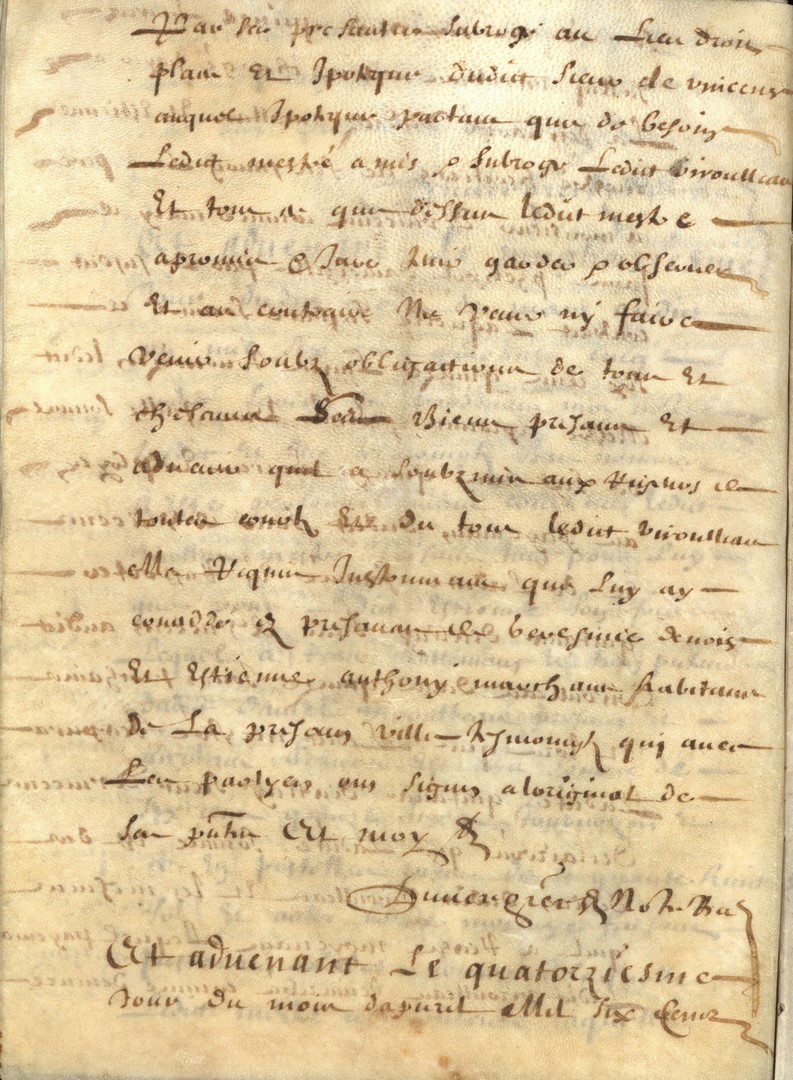 Par ses presentes subrogé au lieu droit
place et Ipoteque dudict sieur de vincens
auquel Ipoteque partant que de besoin
Ledict mestre a mis & subrogé Ledict viroulleau
Et tout ce que dessus ledict mestre
a promis & Juré tenir garder & observer
Et au contraire Ne venir ny faire
venir soubz obligations de tous Et
chescuns ses Biens presans Et
advenir quil a soubzmis aux
toutes Et du tout ledict viroulleau
a Requis Instrument que luy ay
concedé presans
Et Estienne anthony marchans habitans
de La presant ville qui avec
Les partyes ont signé a loriginal de
ses Et moy
Duvergier Not. Ra
Et advenant Le quatorziesme
Jour du mois dapvril Mil six Cens